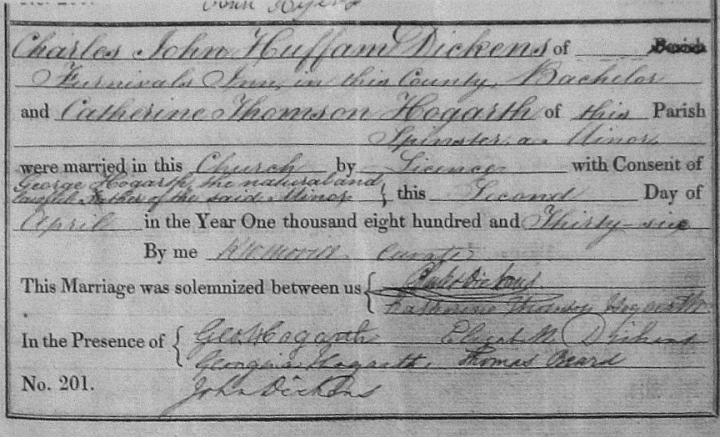 Charles John Huffam Dickens of Parish
Furnivals Inn, in this County, Bachelor
and Catherine Thomson Hogarth of this Parish
Spinster, a Minor,
were married in this Church by Licence with Consent of
George Hogarth, the natural and
lawful Father of the said Minor } this Second Day of
April in the Year One thousand eight hundred and Thirty-six
By me Curate
This Marriage was solemnized between us { Charles Dickens
Katherine Thomson Hogarth
In the Presence of { Geo. Hogarth Elizabeth Dickens
Georgina Hogarth, Thomas Beard
No. 201. John Dickens